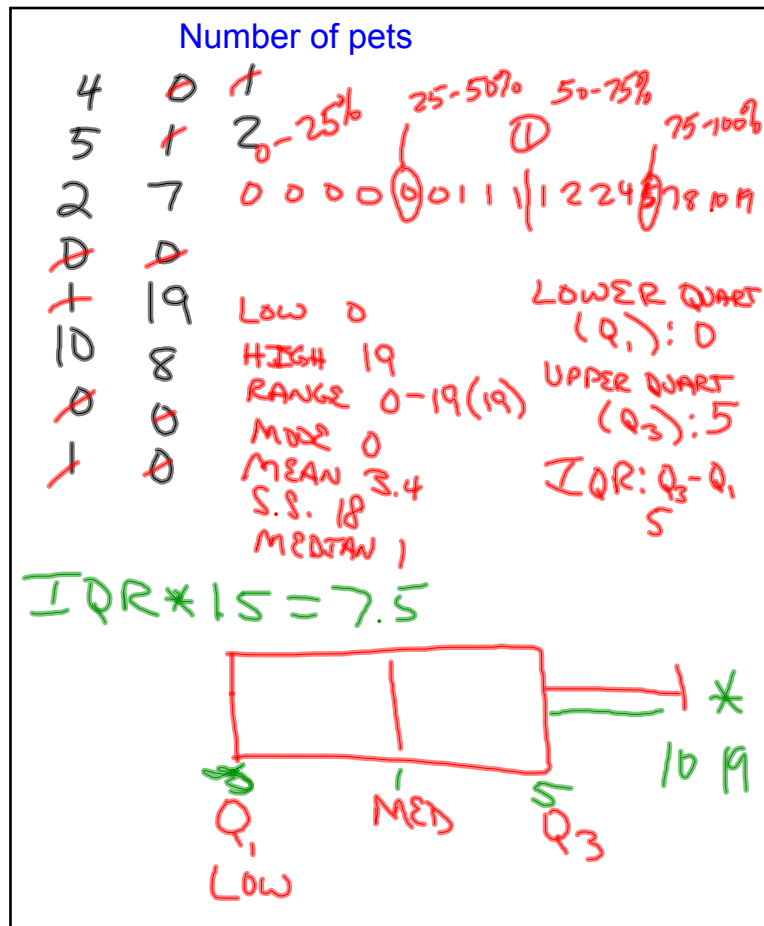 Number of pets
4 0 1
5 1 2
2 7
0 0
1 19
10 8
0 0
1 0
0-25% 25-50% 50-75% 75-100%
1
0 0 0 0 0 0 1 1 1 1 2 2 4 5 7 8 10 19
LOW 0
HIGH 19
RANGE 0-19(19)
MODE 0
MEAN 3.4
S.S. 18
MEDIAN 1
LOWER QUART
(Q1): 0
UPPER QUART
(Q3): 5
IQR: Q3-Q1
5
IQR*1.5=7.5
*
1 5 10 19
Q1 MED Q3
LOW